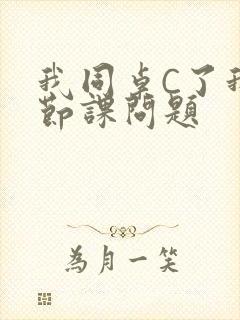 我同卓C了我
節課問題
為月一笑